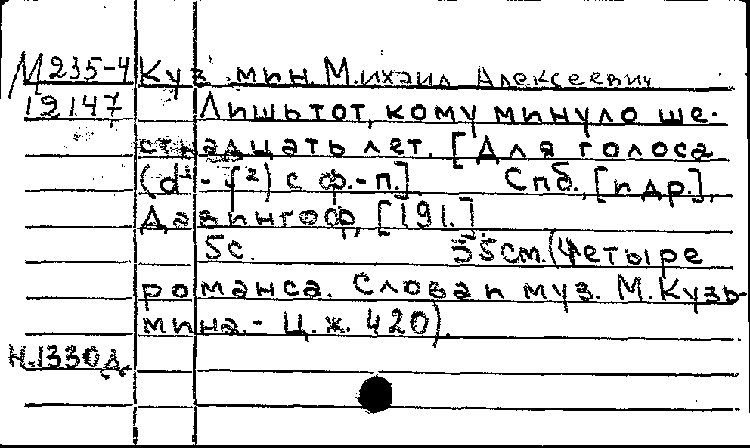 М235-4 Кузмин Михаил Алексеевич
12147 Лишь тот, кому минуло ше-
стнадцать лет. [Для голоса
(d¹-f²) с ф.-п.] Спб., [и др.],
Давингоф, [191.]
5с. 35см. (Четыре
романса. Слова и муз. М. Кузь-
мина.- Ц. ж. 420).
Н.1330д.